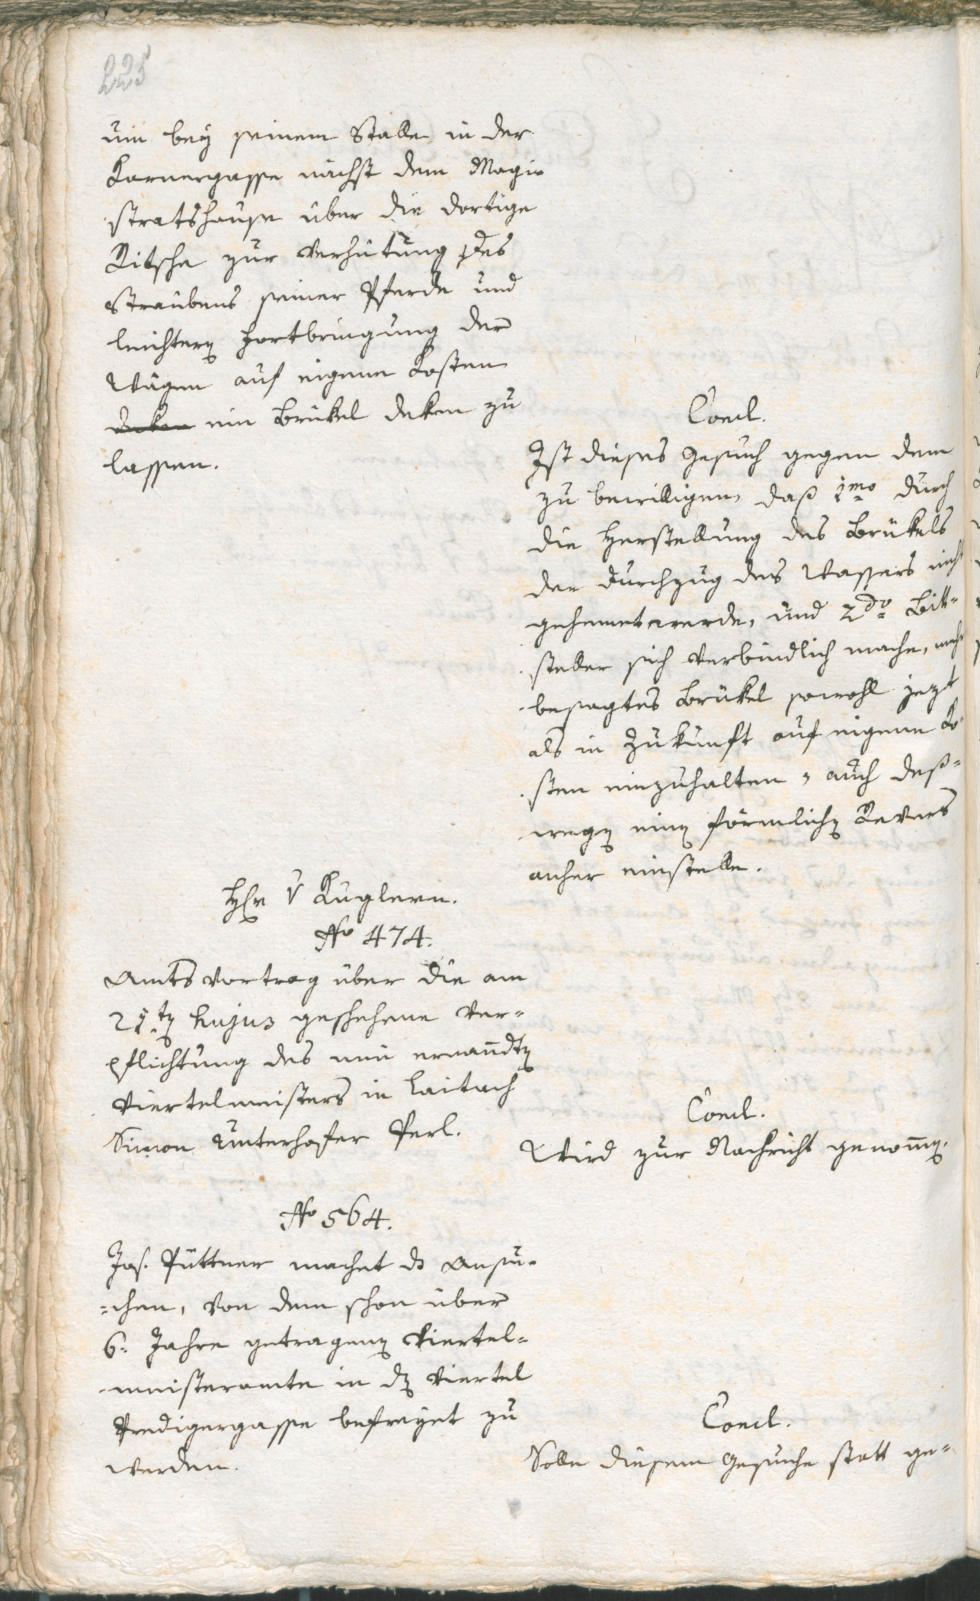 225
um bey seinem Stalle in der
Karnergasse nächst dem Magi-
stratshause über die dortige
Ritsche zur Verhütung des
Straubens seiner Pferde und
leichtern Fortbringung der
Wägen auf eigene Kosten
deken ein Brükel deken zu
lassen.
Concl.
Ist dieses Gesuch gegen dem
zu bewilligen, daß 1mo durch
die Herstellung des Brükels
der Durchzug des Wassers nicht
gehemet werde, und 2do Bitt-
steller sich verbindlich mache,
besagtes Brükel sowohl jezt
als in Zukunft auf eigene Ko-
sten einzuhalten, auch deß-
wegen einen förmlichen Revers
anher einstelle.
Hr v Kuglern.
No 474.
Amtsvortrag über die am
21ten hujus geschehene Ver-
pflichtung des neu ernandten
Viertelmeisters in Laitach
Simon Unterhofer Perl.
Concl.
Wird zur Nachricht genommen.
No 564.
Jos. Püttner machet das Ansu-
chen, von dem schon über
6. Jahre getragenen Viertel-
meisteramte in dem Viertel
Predigergasse befreyet zu
werden.
Concl.
Solle diesem Gesuche statt ge-